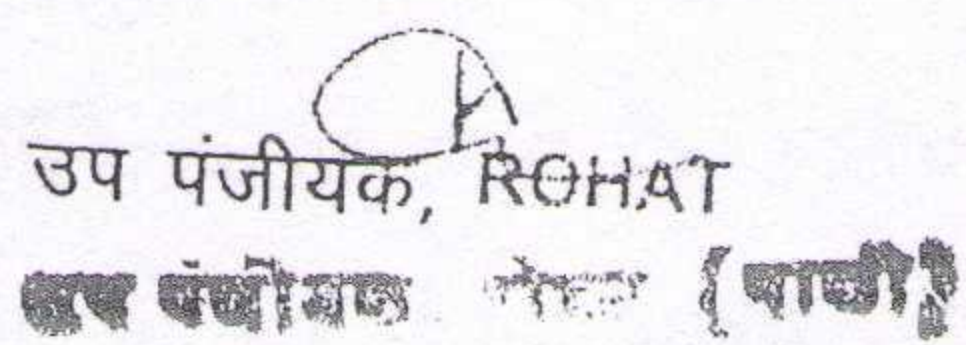 उप पंजीयक, ROHAT
उप पंजीयक रोहट (पाली)